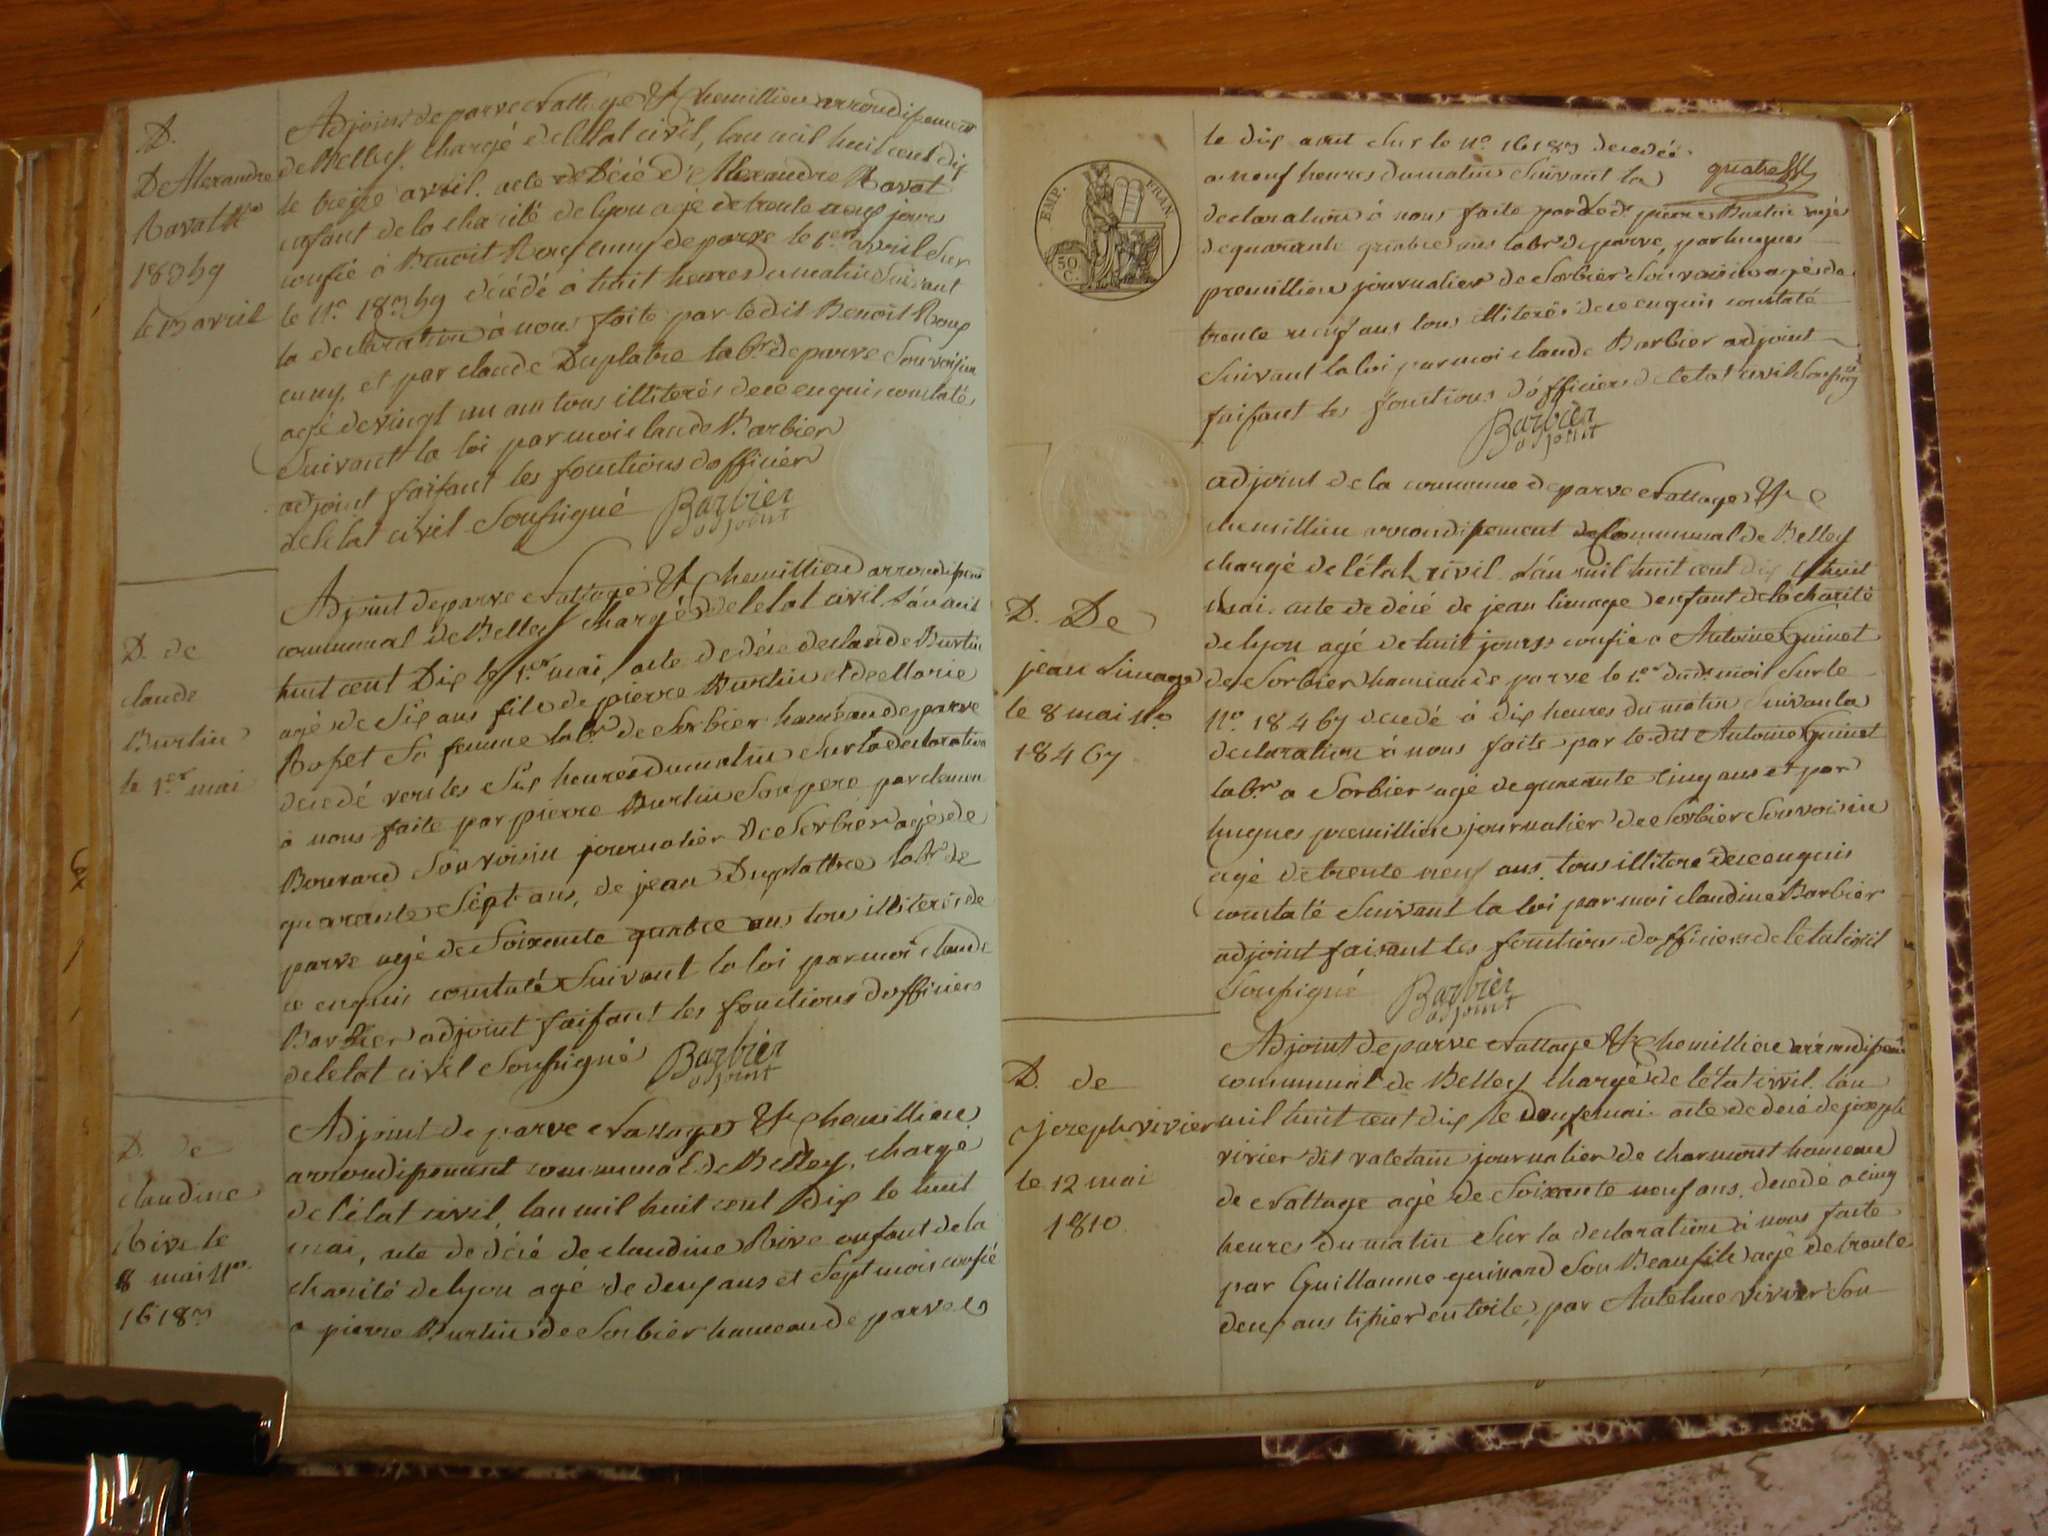 D.
De Alexandre
Ravat No
18359
le 13 avril
Adjoint de parve et nattage & Chemillieu arrondissement
de Belley chargé de létat civil, lan mil huit cent dix
le treize avril. acte de Décé D'Alexandre Ravat
enfant de la charité de lyon agé de trente neuf jours
confié à Benoit Roux de parve le 1er avril sur
le No. 18359 décédé à huit heures du matin Suivant
la declaration à nous faite par le dit Benoit Roux
et par claude Duplatre labr. de parve Son voisin
agé de vingt un ans tous illiterés de ce enquis constaté
Suivant la loi par moi claude Barbier
adjoint faisant les fonctions dofficier
de letat civil Soussigné Barbier
adjoint
D. de
claude
Burtin
le 1er mai
Adjoint de parve et nattage & Chemillieu arrondissem
communal de Belley chargé de letat civil. L'an mil
huit cent Dix le 1er mai, acte de décé de claude Burtin
agé de Six ans fils de pierre Burtin et de Marie
Rosset Sa femme labr. de Sorbier hameau de parve
decedé vers les Six heures du matin sur la declaration
à nous faite par pierre Burtin Son pere par
Bouvard Son voisin journalier de Sorbier agé de
quarante Sept ans, de jean Duplattre labr. de
parve agé de Soixante quatre ans tous illiterés de
ce enquis constaté Suivant la loi par moi claude
Barbier adjoint faisant les fonctions dofficiers
de letat civil Soussigné Barbier
adjoint
D. de
claudine
Rive le
8 mai No.
16183
Adjoint de parve et nattage & Chemillieu
arrondissement communal de Belley, chargé
de l'état civil, lan mil huit cent Dix le huit
mai, acte de décé de claudine Rive enfant de la
charité de lyon agé de deux ans et Sept mois confié
a pierre Burtin de Sorbier hameau de parve
EMP. FRAN.
50
C.
le dix aout Sur le No 16183 decedée
a neuf heures du matin Suivant la
declaration à nous faite par Led. pierre Burtin agé
de quarante quatre ans labr. de parve, par hugues
premillieu journalier de Sorbier Son voisin agé de
trente neuf ans tous illiterés de ce enquis constaté
Suivant la loi par moi claude Barbier adjoint
faisant les fonctions d'officiers de letat civil Soussigné
Barbier
adjoint
D. De
jean Limage
le 8 mai No
18467
adjoint de la commune de parve et nattage &
chemillieu arrondissement communal de Belley
chargé de l'état civil. L'an mil huit cent dix le huit
mai. acte de décé de jean limage enfant de la charité
de lyon agé de huit jours confié a Antoine Guinet
de Sorbier hameau de parve le 1er dud. mois Sur le
No. 18467 decedé à dix heures du matin Suivant la
declaration à nous faite par le dit Antoine Guinet
labr. a Sorbier agé de quarante cinq ans et par
hugues premillieu journalier de Sorbier Son voisin
agé de trente neuf ans. tous illiteré de ce enquis
constaté Suivant la loi par moi claudine Barbier
adjoint faisant les fonctions dofficiers de letat civil
Soussigné Barbier
adjoint
D. de
joseph vivier
le 12 mai
1810
Adjoint de parve et nattage & Chemillieu arrondissem
communal de Belley chargé de l'état civil. lan
mil huit cent dix le douze mai acte de décé de joseph
vivier dit valetain journalier de charmont hameau
de nattage agé de Soixante neuf ans. decedé a cinq
heures du matin Sur la declaration à nous faite
par Guillaume Son Beaufils agé de trente
deux ans tissier en toile, par Antelme vivier Son